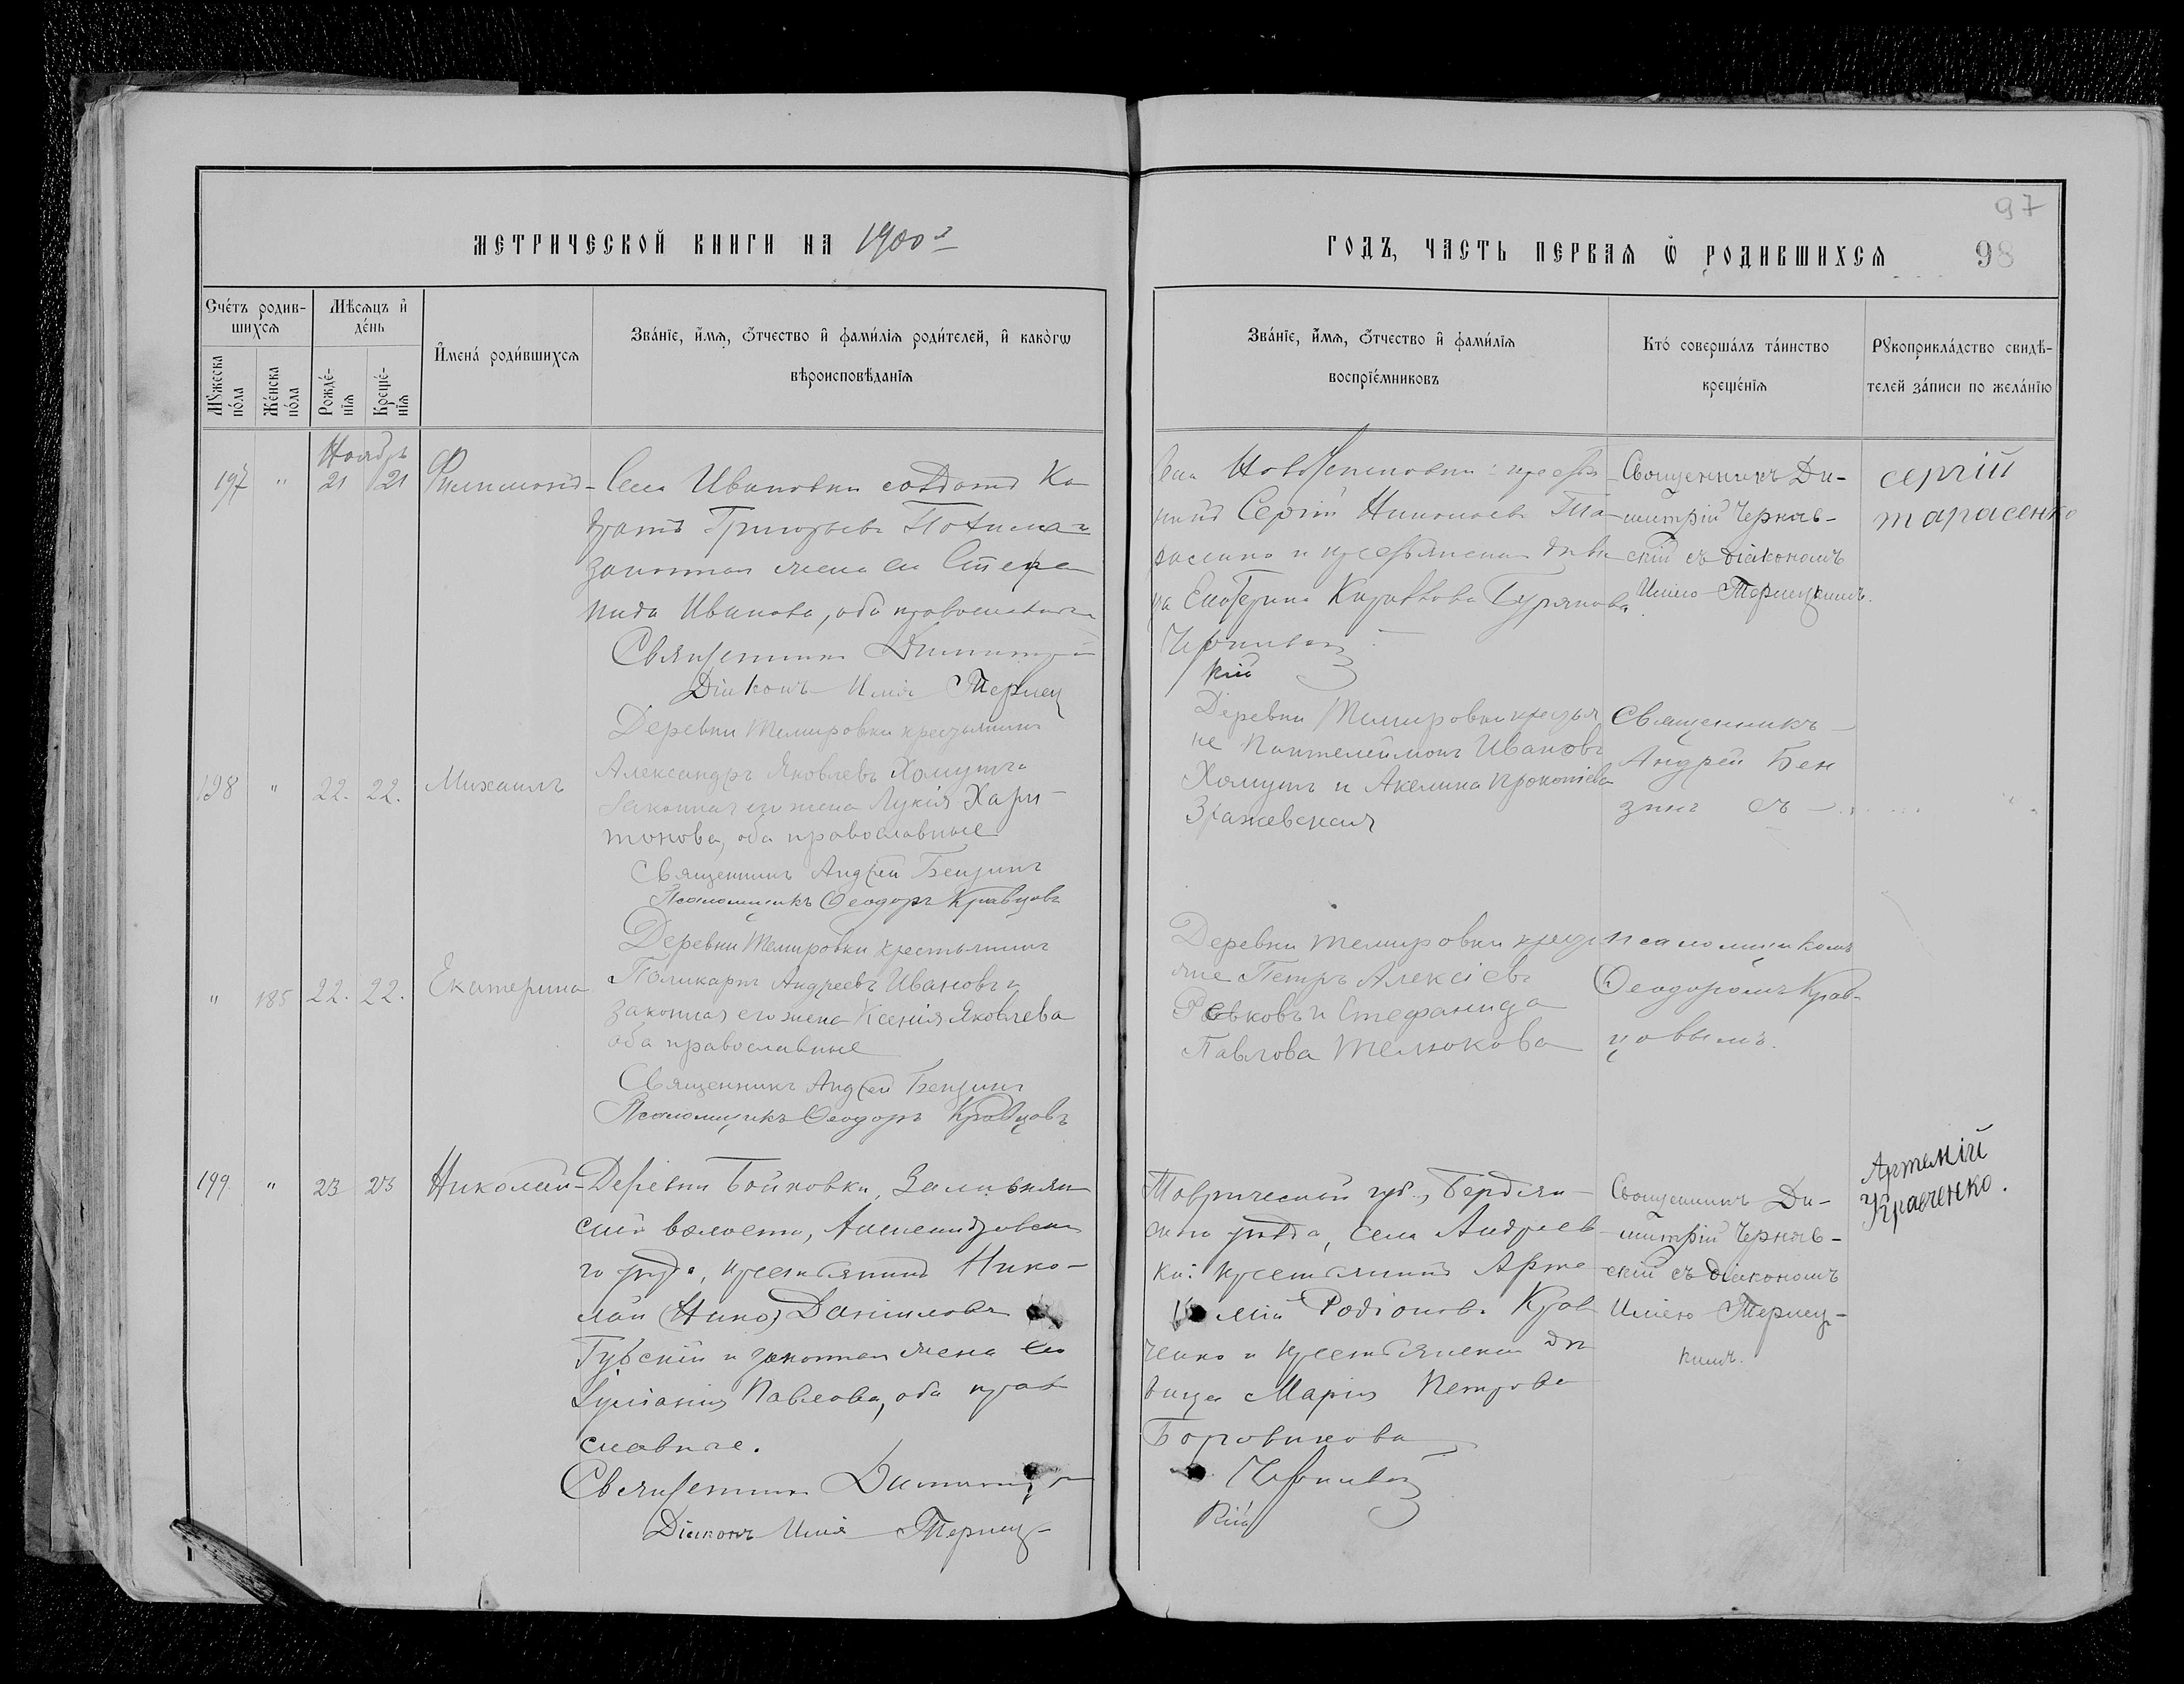 97
МЕТРИЧЕСКОЙ КНИГИ НА 1900 г
ГОДЪ, ЧАСТЬ ПЕРВАЯ Ѿ РОДИВШИХСЯ 98
Счетъ родив-
шихся
Мѣсяцъ и
день
Мꙋжеска
пола
Женска
пола
Рожде-
нія
Креще-
нія
Имена родившихся
Званіе, имя, отчество и фамилія родителей, и какогѡ
вѣроисповѣданія
Званіе, имя, отчество и фамилія
воспріемниковъ
Кто совершалъ таинство
крещенія
Рꙋкоприкладство свидѣ-
телей записи по желанію
Ноябрь
197 " 21 21 Филимонъ
Села Ивановки солдатъ Ко
дратъ Григорьевъ
законная жена его Стефа
нида Иванова, оба православные
Священникъ Димитрій
Діаконъ Илія Тернец
крестья
нинъ Сергій Николаевъ Та
расенко и крестьянская дѣви
ца Екатерина Бурякова
Чернявс
кій
Священникъ Ди-
митрій Черняв-
скій съ діакономъ
Иліею Тернецкимъ.
сергій
тарасенко
198 " 22. 22. Михаилъ
Деревни Темировки крестьянинъ
Александръ Яковлевъ Хомутъ и
законная его жена Лукія Хари-
тонова, оба православные
Священникъ Андрей Бензинъ
Псаломщикъ Ѳеодоръ Кравцовъ
Деревни Темировки крестья
не Пантелеймонъ Ивановъ
Хомутъ и Акелина Прокопіева
Зражевская
Священникъ
Андрей Бен
зинъ съ
" 185 22. 22. Екатерина
Деревни Темировки крестьянинъ
Поликарпъ Андреевъ Ивановъ и
законная его жена Ксенія Яковлева
оба православные
Священникъ Андрей Бензинъ
Псаломщикъ Ѳеодоръ Кравцовъ
Деревни Темировки кресть
яне Петръ Алексіевъ
Ревковъ и Стефанида
Павлова Телюкова
псаломщикомъ
Ѳеодоромъ Крав-
цовымъ.
199 " 23 23 Николай
Деревни Бойковки,
ской волости, Александровска
го уѣзда, крестьянинъ Нико-
лай (Нико) Даніиловъ
Губскій и законная жена его
Іуліанія Павлова, оба прав
славные.
Священникъ Димитрій
Діаконъ Илія Тернец-
Таврической губ., Бердян-
скаго уѣзда, села Андреев
ки: крестьянинъ Арте
мій Родіоновъ Крав
ченко и крестьянская дѣ
вица Марія Петрова
Боровикова
Чернявс
кій
Священникъ Ди-
митрій Черняв-
скій съ діакономъ
Иліею Тернец-
кимъ.
Артемій
Кравченко.